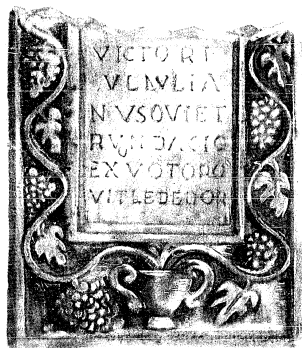 VICTORI
VLIVLIA
NVSQVIET
RVNDACIO
EXVOTOPO
VITLEDEDOR